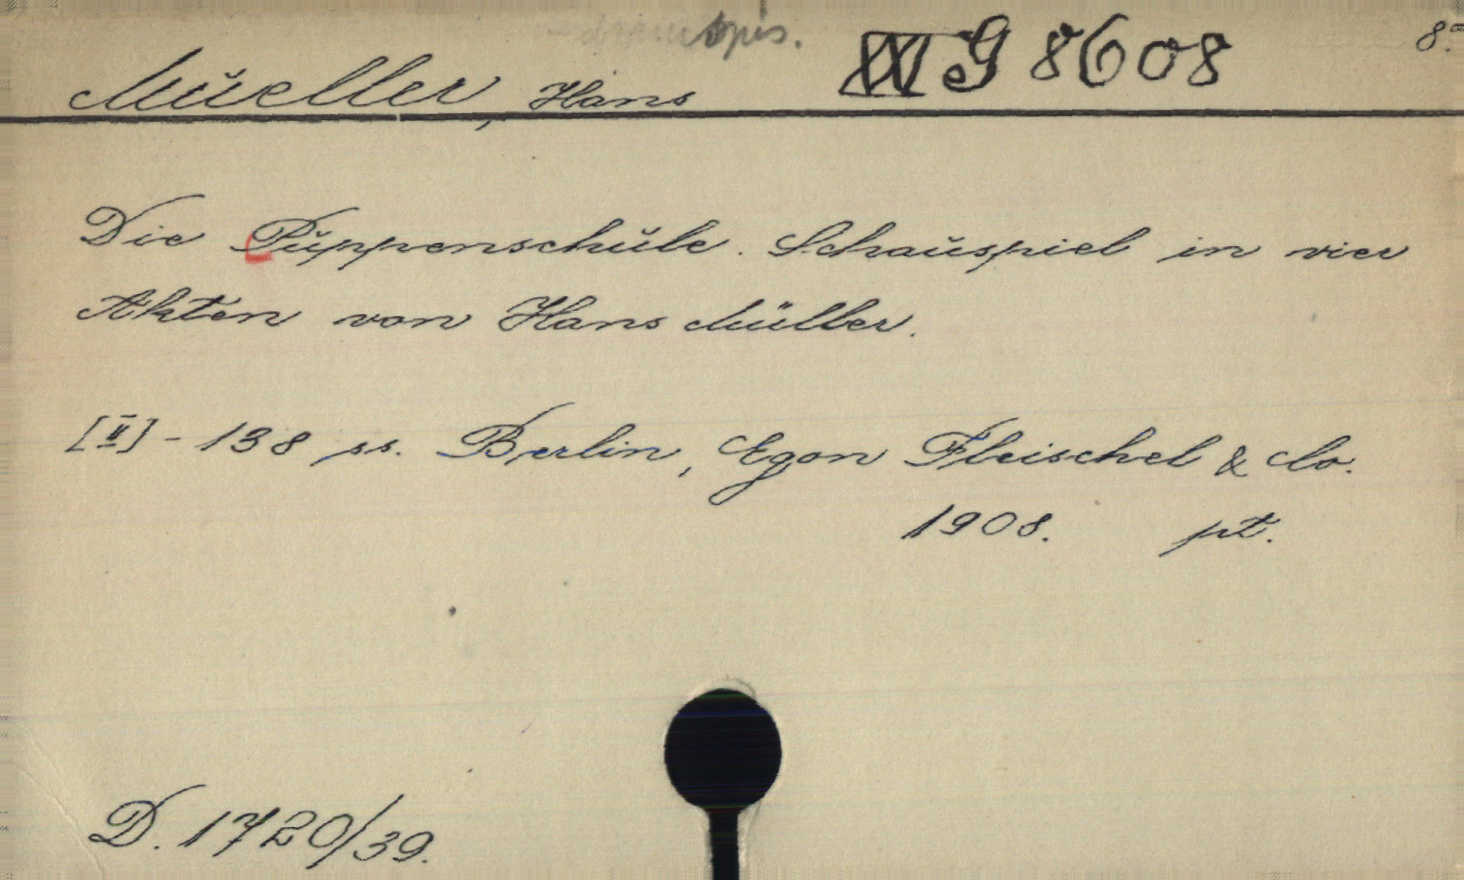 Mueller, Hans G 8608 8.°
Die Puppenschule. Schauspiel in vier
Akten von Hans Müller.
[II] - 138 ss. Berlin, Egon Fleischel & Co.
1908. pt.
D. 1720/39.